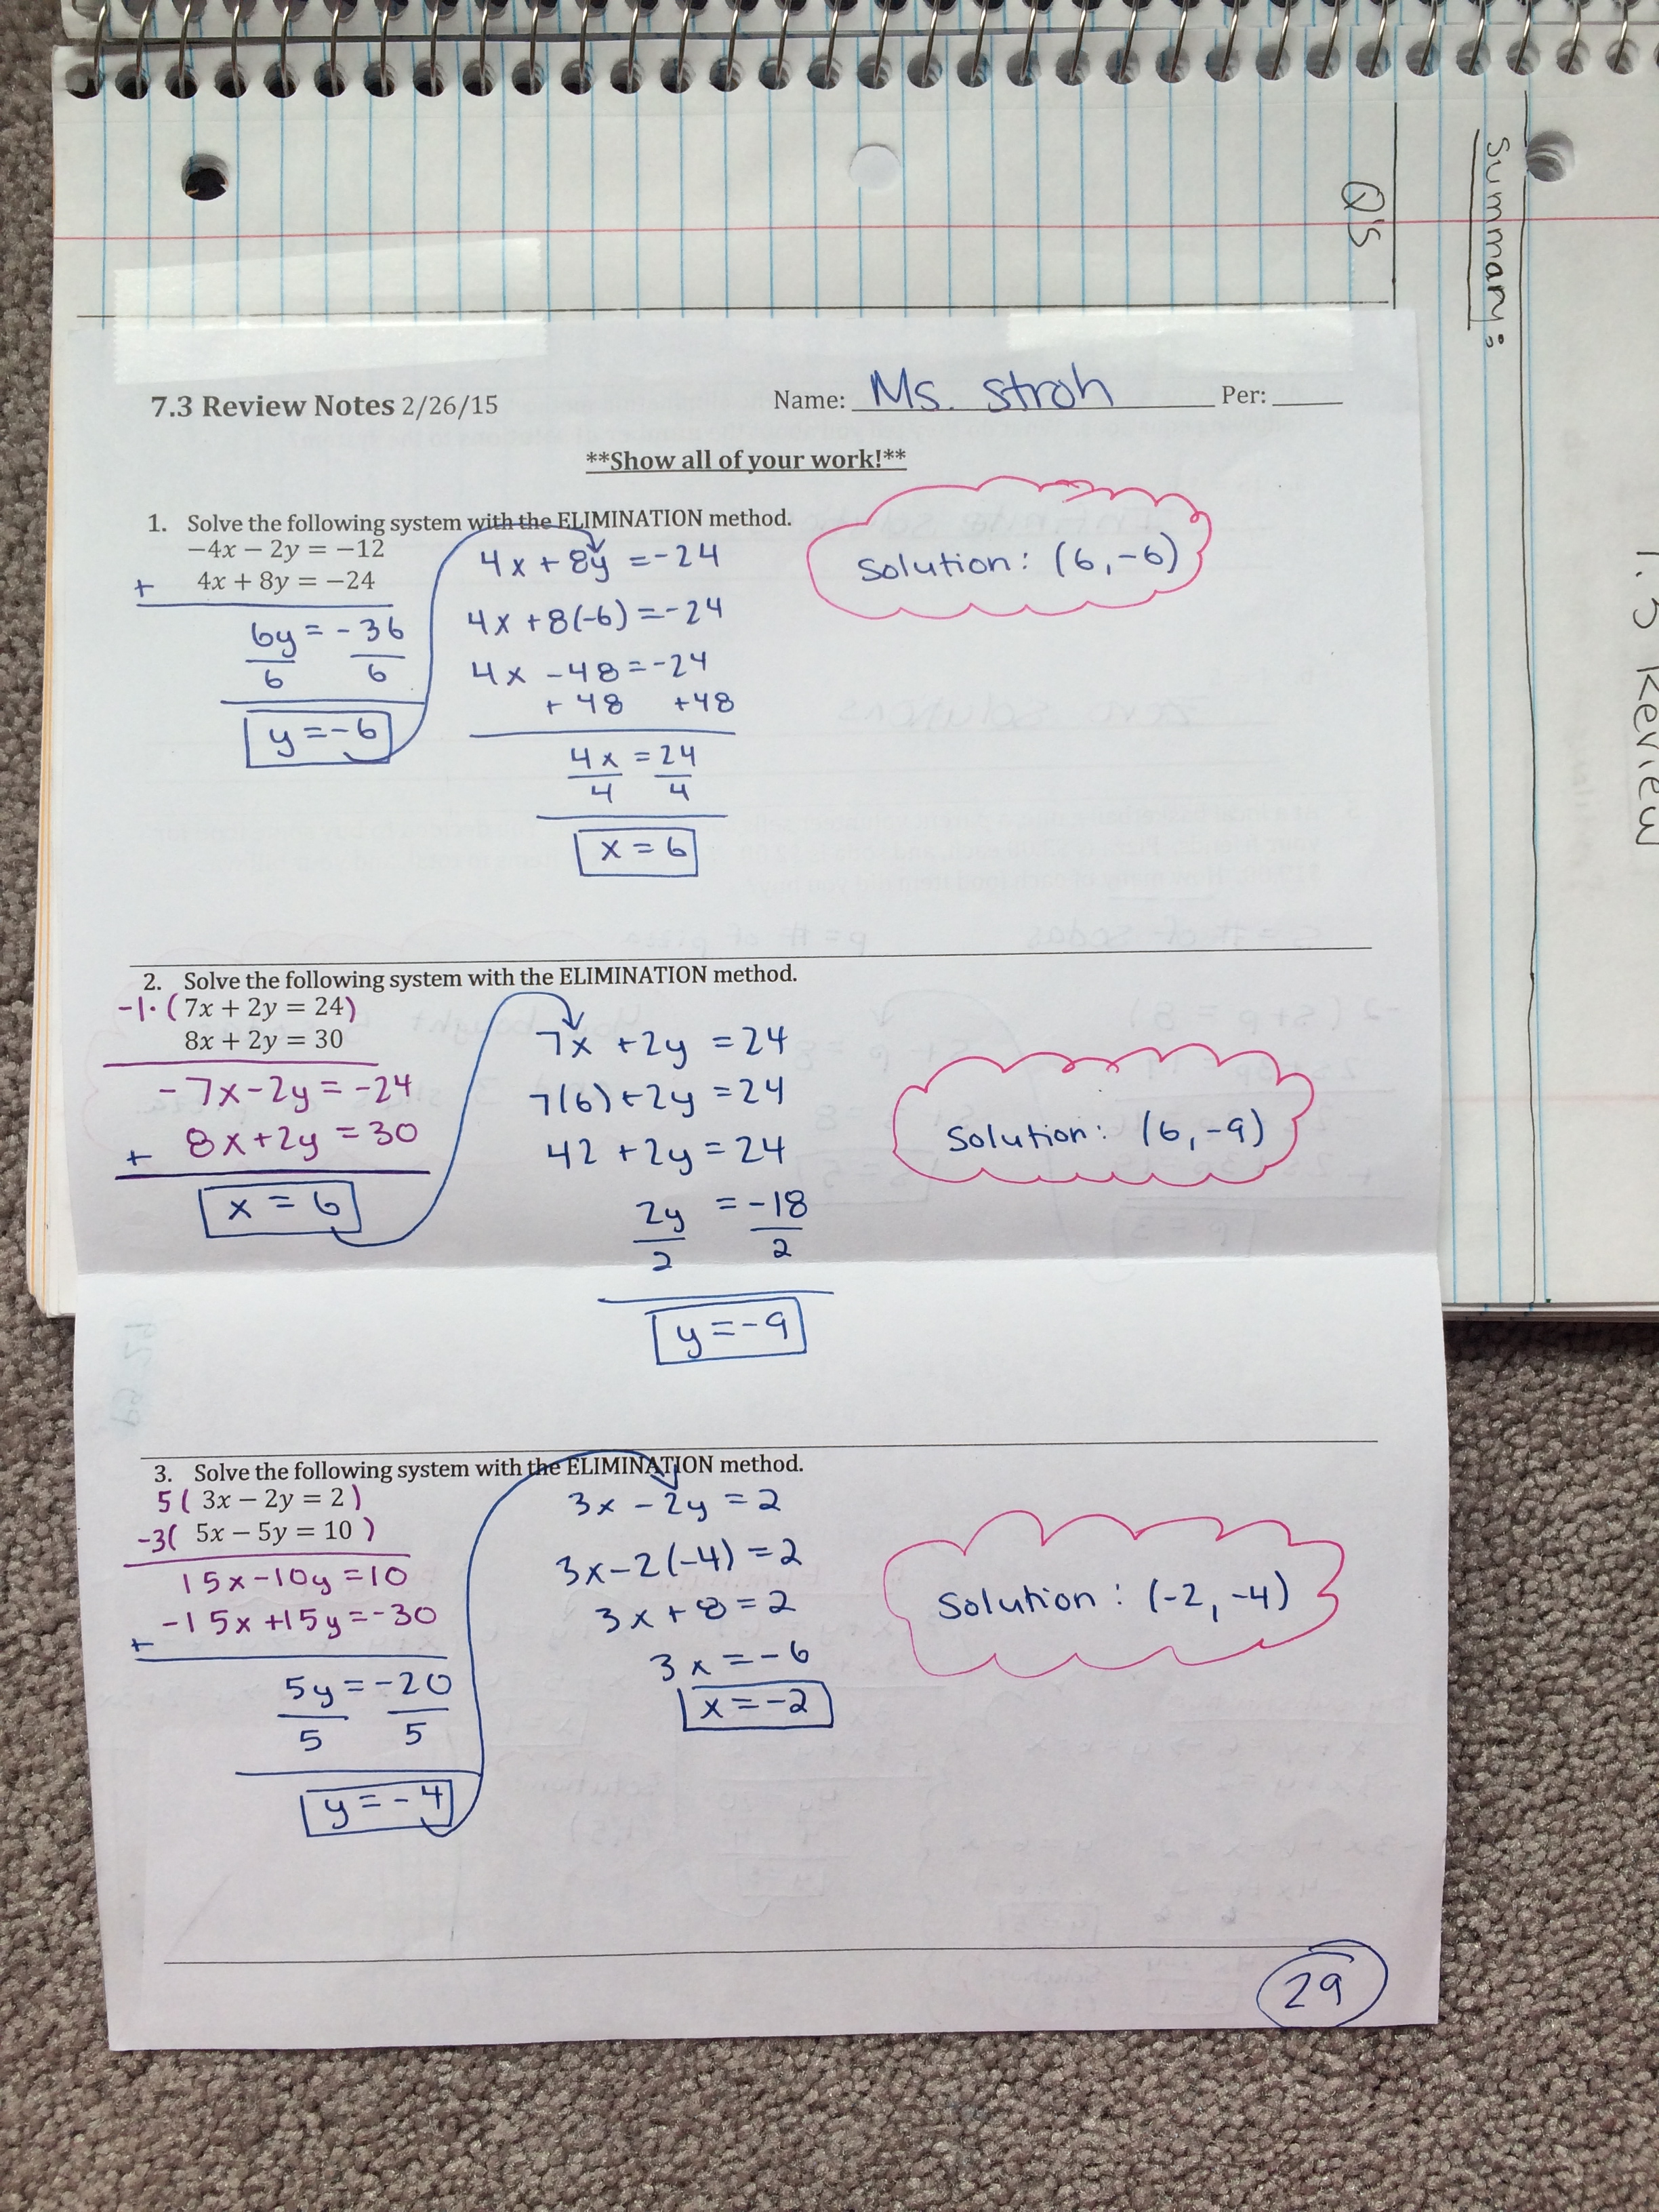 Summary:
Q's
7.3 Review
7.3 Review Notes 2/26/15 Name: Ms. Stroh Per:
**Show all of your work!**
1. Solve the following system with the ELIMINATION method.
−4x − 2y = −12
+ 4x + 8y = −24
6y = -36
6 6
y = -6
4x + 8y = -24
4x + 8(-6) = -24
4x - 48 = -24
+ 48 +48
4x = 24
4 4
x = 6
Solution: (6, -6)
2. Solve the following system with the ELIMINATION method.
-1·( 7x + 2y = 24)
8x + 2y = 30
-7x - 2y = -24
+ 8x + 2y = 30
x = 6
7x + 2y = 24
7(6) + 2y = 24
42 + 2y = 24
2y = -18
2 2
y = -9
Solution: (6, -9)
3. Solve the following system with the ELIMINATION method.
5( 3x − 2y = 2)
-3( 5x − 5y = 10 )
15x - 10y = 10
+ -15x + 15y = -30
5y = -20
5 5
y = -4
3x - 2y = 2
3x - 2(-4) = 2
3x + 8 = 2
3x = -6
x = -2
Solution: (-2, -4)
29